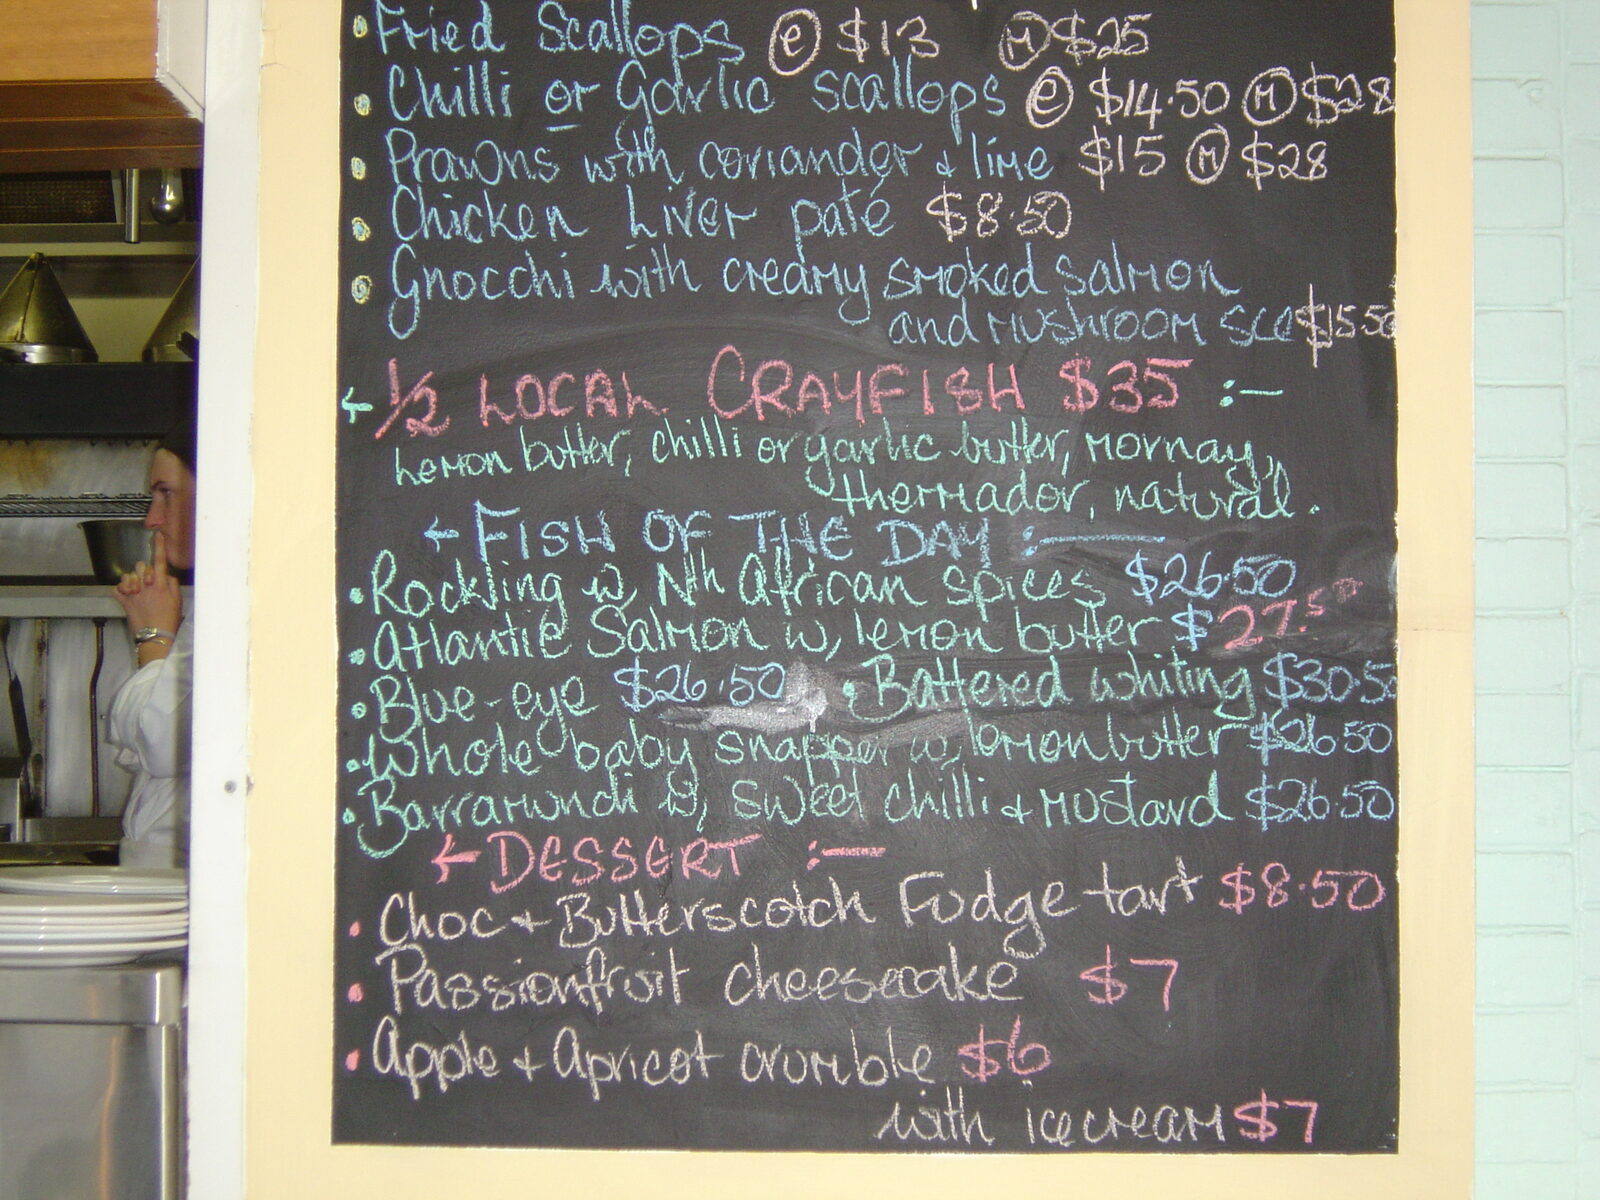 • Fried Scallops ⓔ $13 Ⓜ $25
• Chilli or Garlic scallops ⓔ $14.50 Ⓜ $28
• Prawns with coriander + lime $15 Ⓜ $28
• Chicken Liver paté $8.50
• Gnocchi with creamy smoked salmon
and mushroom sce $15.50
← 1/2 LOCAL CRAYFISH $35 :-
Lemon butter, chilli or garlic butter, mornay,
thermador, natural.
← FISH OF THE DAY :-
• Rockling w, Nth African spices $26.50
• Atlantic Salmon w, lemon butter $27.50
• Blue-eye $26.50 • Battered whiting $30.50
• Whole baby snapper w, lemon butter $26.50
• Barramundi w, sweet chilli + mustard $26.50
← DESSERT :-
• Choc + Butterscotch Fudge tart $8.50
• Passionfruit cheesecake $7
• Apple + Apricot crumble $6
with icecream $7